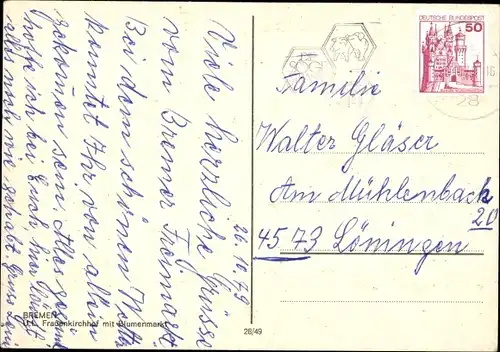 26.10.79
Viele herzliche Grüsse
vom Bremer Freimarkt
Bei dem schönen Wetter
konntet Ihr von allein
gekommen sein. Alles
hoffe ich bei Euch, hier
alles noch
BREMEN
U.L. Frauenkirchhof mit Blumenmarkt
28/49
DEUTSCHE BUNDESPOST
50
28
Familie
Walter Gläser
Am Mühlenbach
20
4573 Löningen